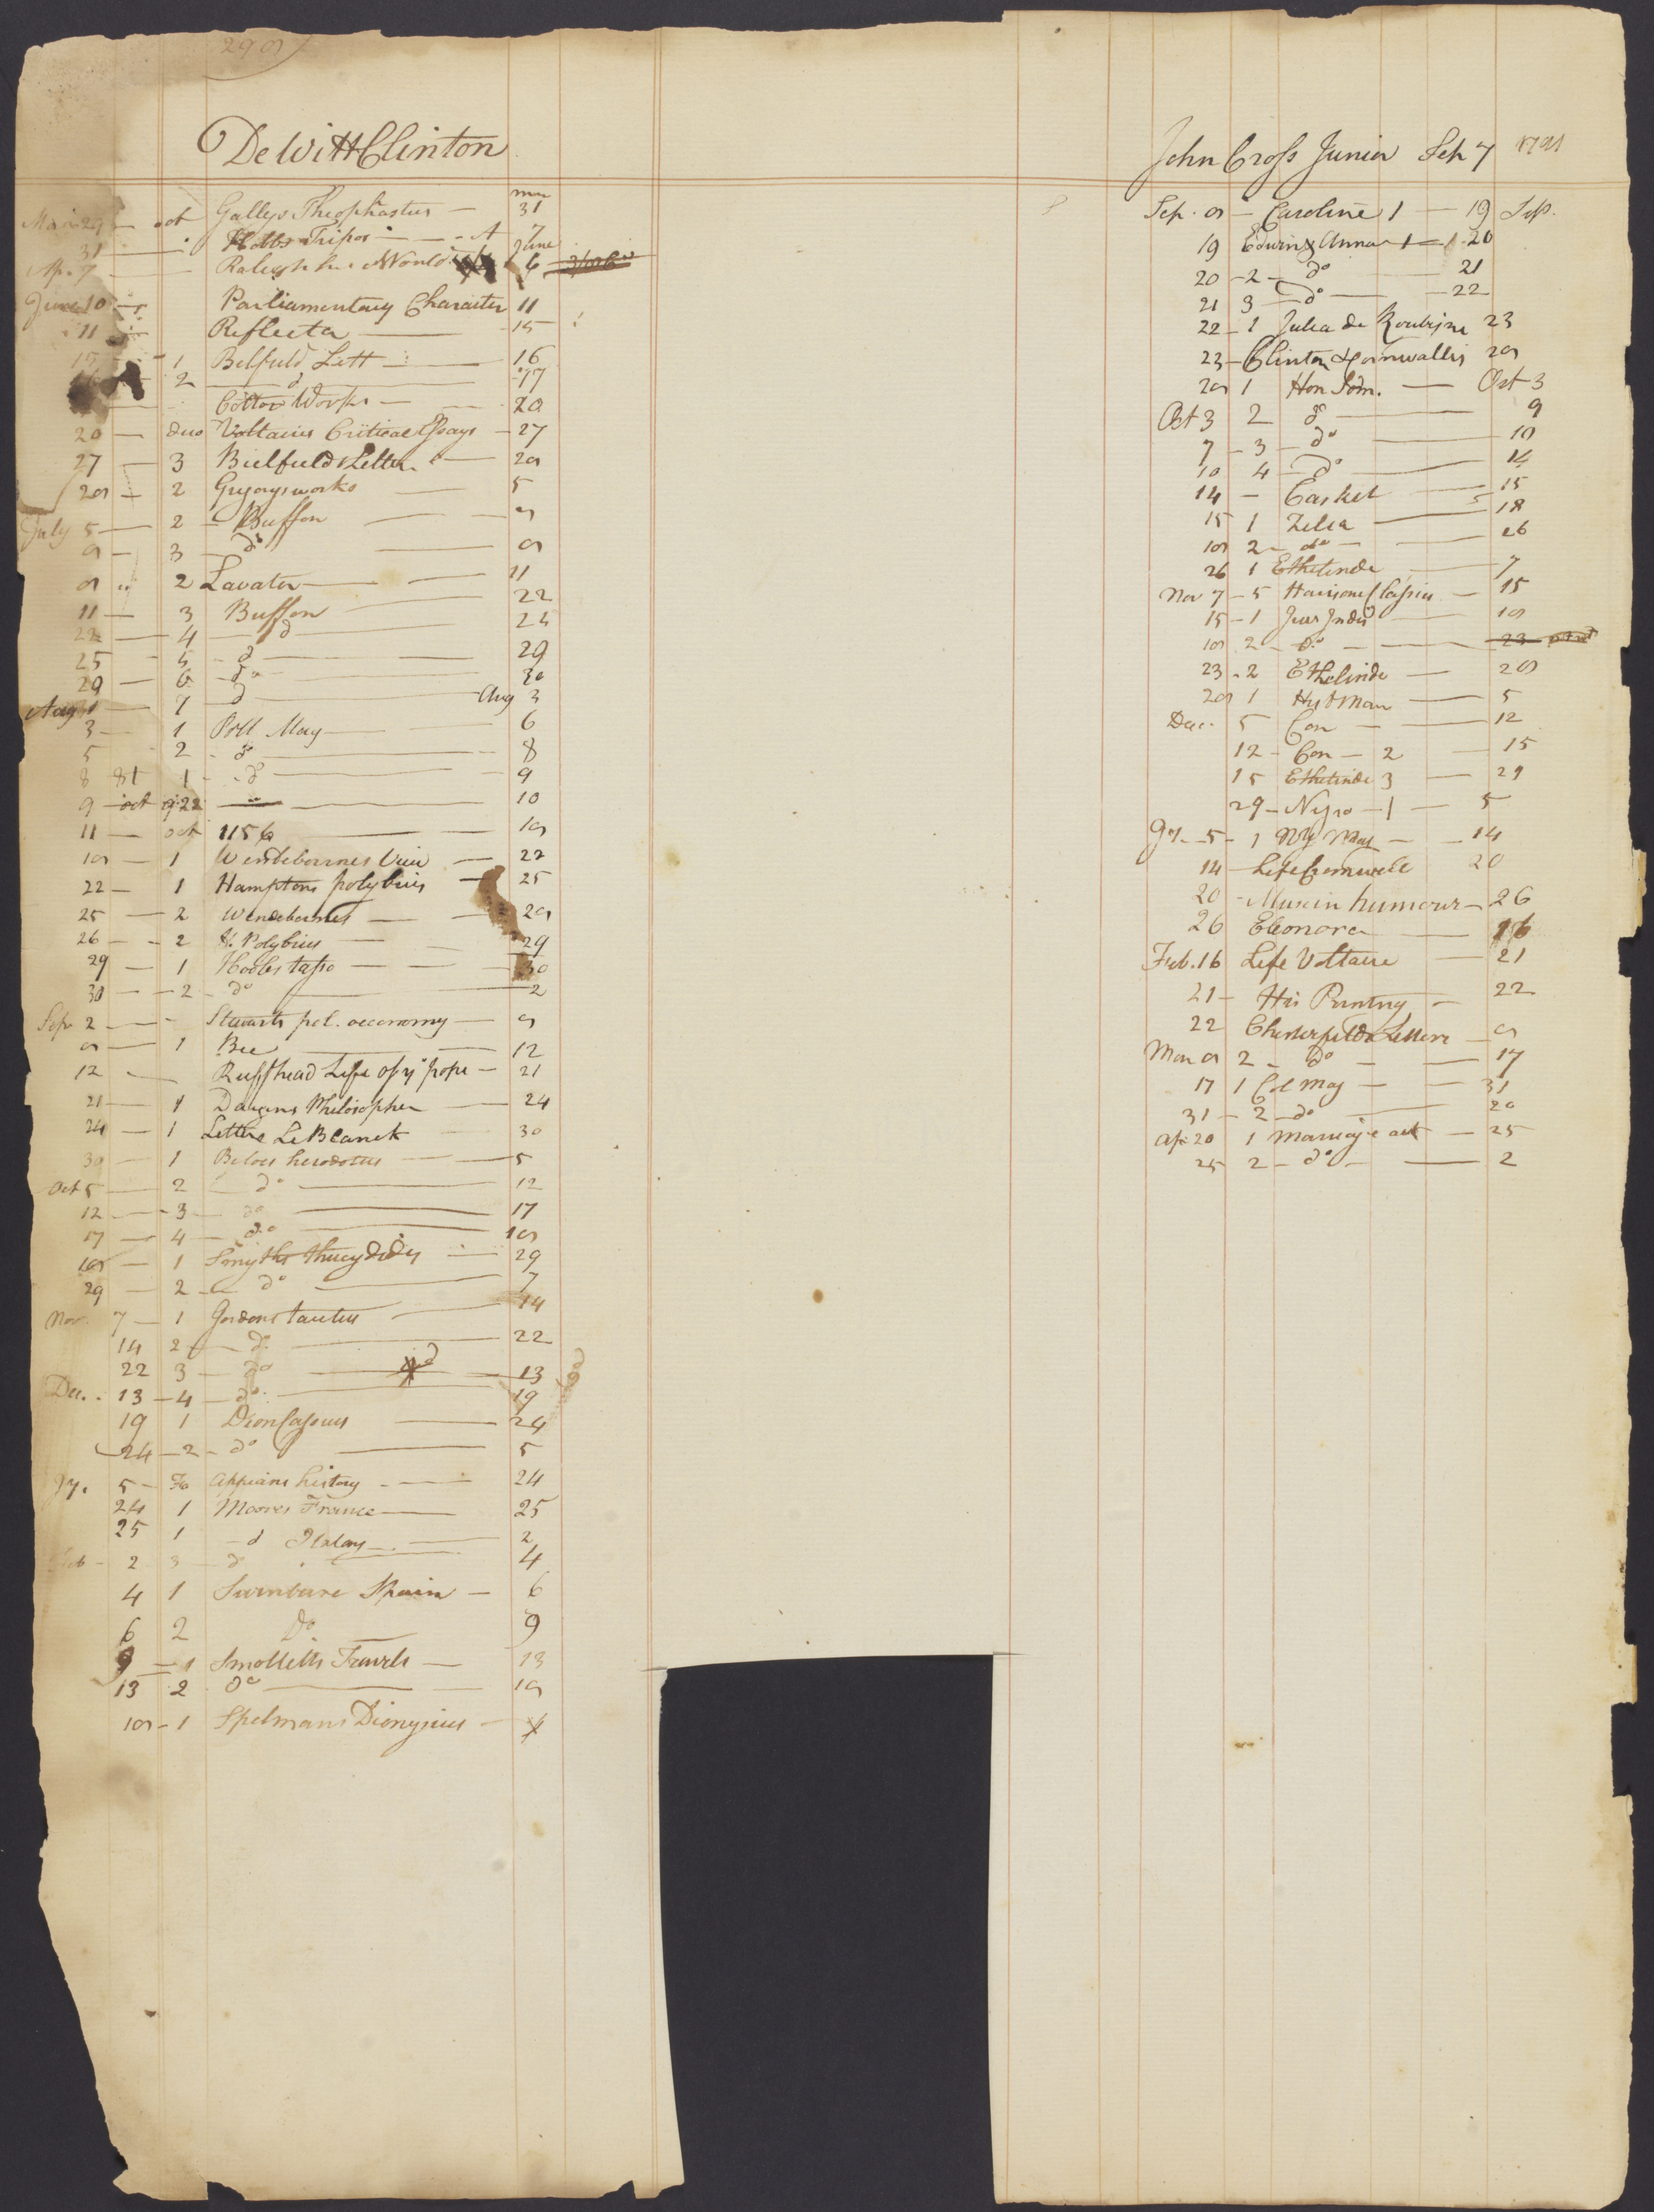 DeWitt Clinton
Mar 29 — oct Gallys Theophrastus — mar 31
31 — Hobbs Tripos — A 7
Ap. 7 — World June 6
June 10 — Parliamentary Character 11
11 — Reflecta — 15
15 — 1 Belfield Lett — 16
2 — d — 17
Cotton Works — 20
20 — duo Voltaires Critical Essays — 27
27 — 3 Bielfields Letter — 28
28 — 2 Gregorys works — 5
July 5 — 2 — Buffon — 8
8 — 3 — do — 8
8 2 Lavater — 11
11 — 3 Buffon — 22
22 — 4 — d — 25
25 — 5 — d — 29
29 — 6 — do — 30
Aug — 7 — d — Aug 3
3 — 1 Poll Mag — 6
5 2 — do — 8
8 1 — do — 9
9 — oct 922 — 10
11 — oct 1156 — 18
18 — 1 Wendebornes View — 22
22 — 1 Hamptons polybius — 25
25 — 2 Wendebornes — 28
26 — 2 H. Polybius — 29
29 — 1 Hooles tasso — 30
30 — 2 — do — 2
Sep 2 — Stewarts pol. oeconomy — 8
8 — 1 Bee — 12
12 — Ruffhead Life of y pope — 21
21 — 1 Dawsons Philosopher — 24
24 — 1 Letters Le Blanck — 30
30 — 1 Beloes herodotus — 5
Oct 5 — 2 — do — 12
12 — 3 — do — 17
17 — 4 — do — 18
18 — 1 Smyths thucydides — 29
29 — 2 — do — 7
Nov. 7 — 1 Gordons tacitus — 14
14 2 — do — 22
22 3 — do — 13
Dec. 13 — 4 — do — 19
19 1 Dion Cassius — 24
24 — 2 — do — 5
Jy. 5 — Fo Appians history — 24
24 1 Moores France — 25
25 1 — d Italay — 2
Feb — 2 3 — do — 4
4 1 Swinburne Spain — 6
6 2 Do 9
9 — 1 Smolletts Travels — 13
13 2 do — 18
18 — 1 Spelmans Dionysius —
John Cross Junior Sep 7 1791
Sep. 8 — Caroline 1 — 19 Sep.
19 Edwin & Anna 1 — 20
20 — 2 — do — 21
21 3 — do — 22
22 — 1 Julia de Roubigne 23
23 — Clinton & Cornwallis 28
28 1 Hon Hom. — Oct 3
Oct 3 2 do — 9
7 — 3 — do — 10
10 4 — do — 14
14 — Casket — 15
15 1 Zelia — 18
18 2 — do — 26
26 1 Ethelinde — 7
Nov 7 — 5 — 15
15 — 1 — 18
18 2 — do — 23
23 — 2 Ethelinde — 28
28 1 — 5
Dec. 5 Con — 12
12 — Con — 2 — 15
15 Ethelinde 3 — 29
29 — Negro — 1 — 5
Jy. 5 — 1 NY Mag — 14
14 — Life Cromwell 20
20 — Musein humour — 26
26 Eleonora — 16
Feb. 16 Life Voltaire — 21
21 — His Printing — 22
22 Chesterfields Letters — 8
Mar 8 2 — do — 17
17 1 Col Mag — 31
31 — 2 — do — 20
Ap 20 1 Marriage act — 25
25 2 — do — 2